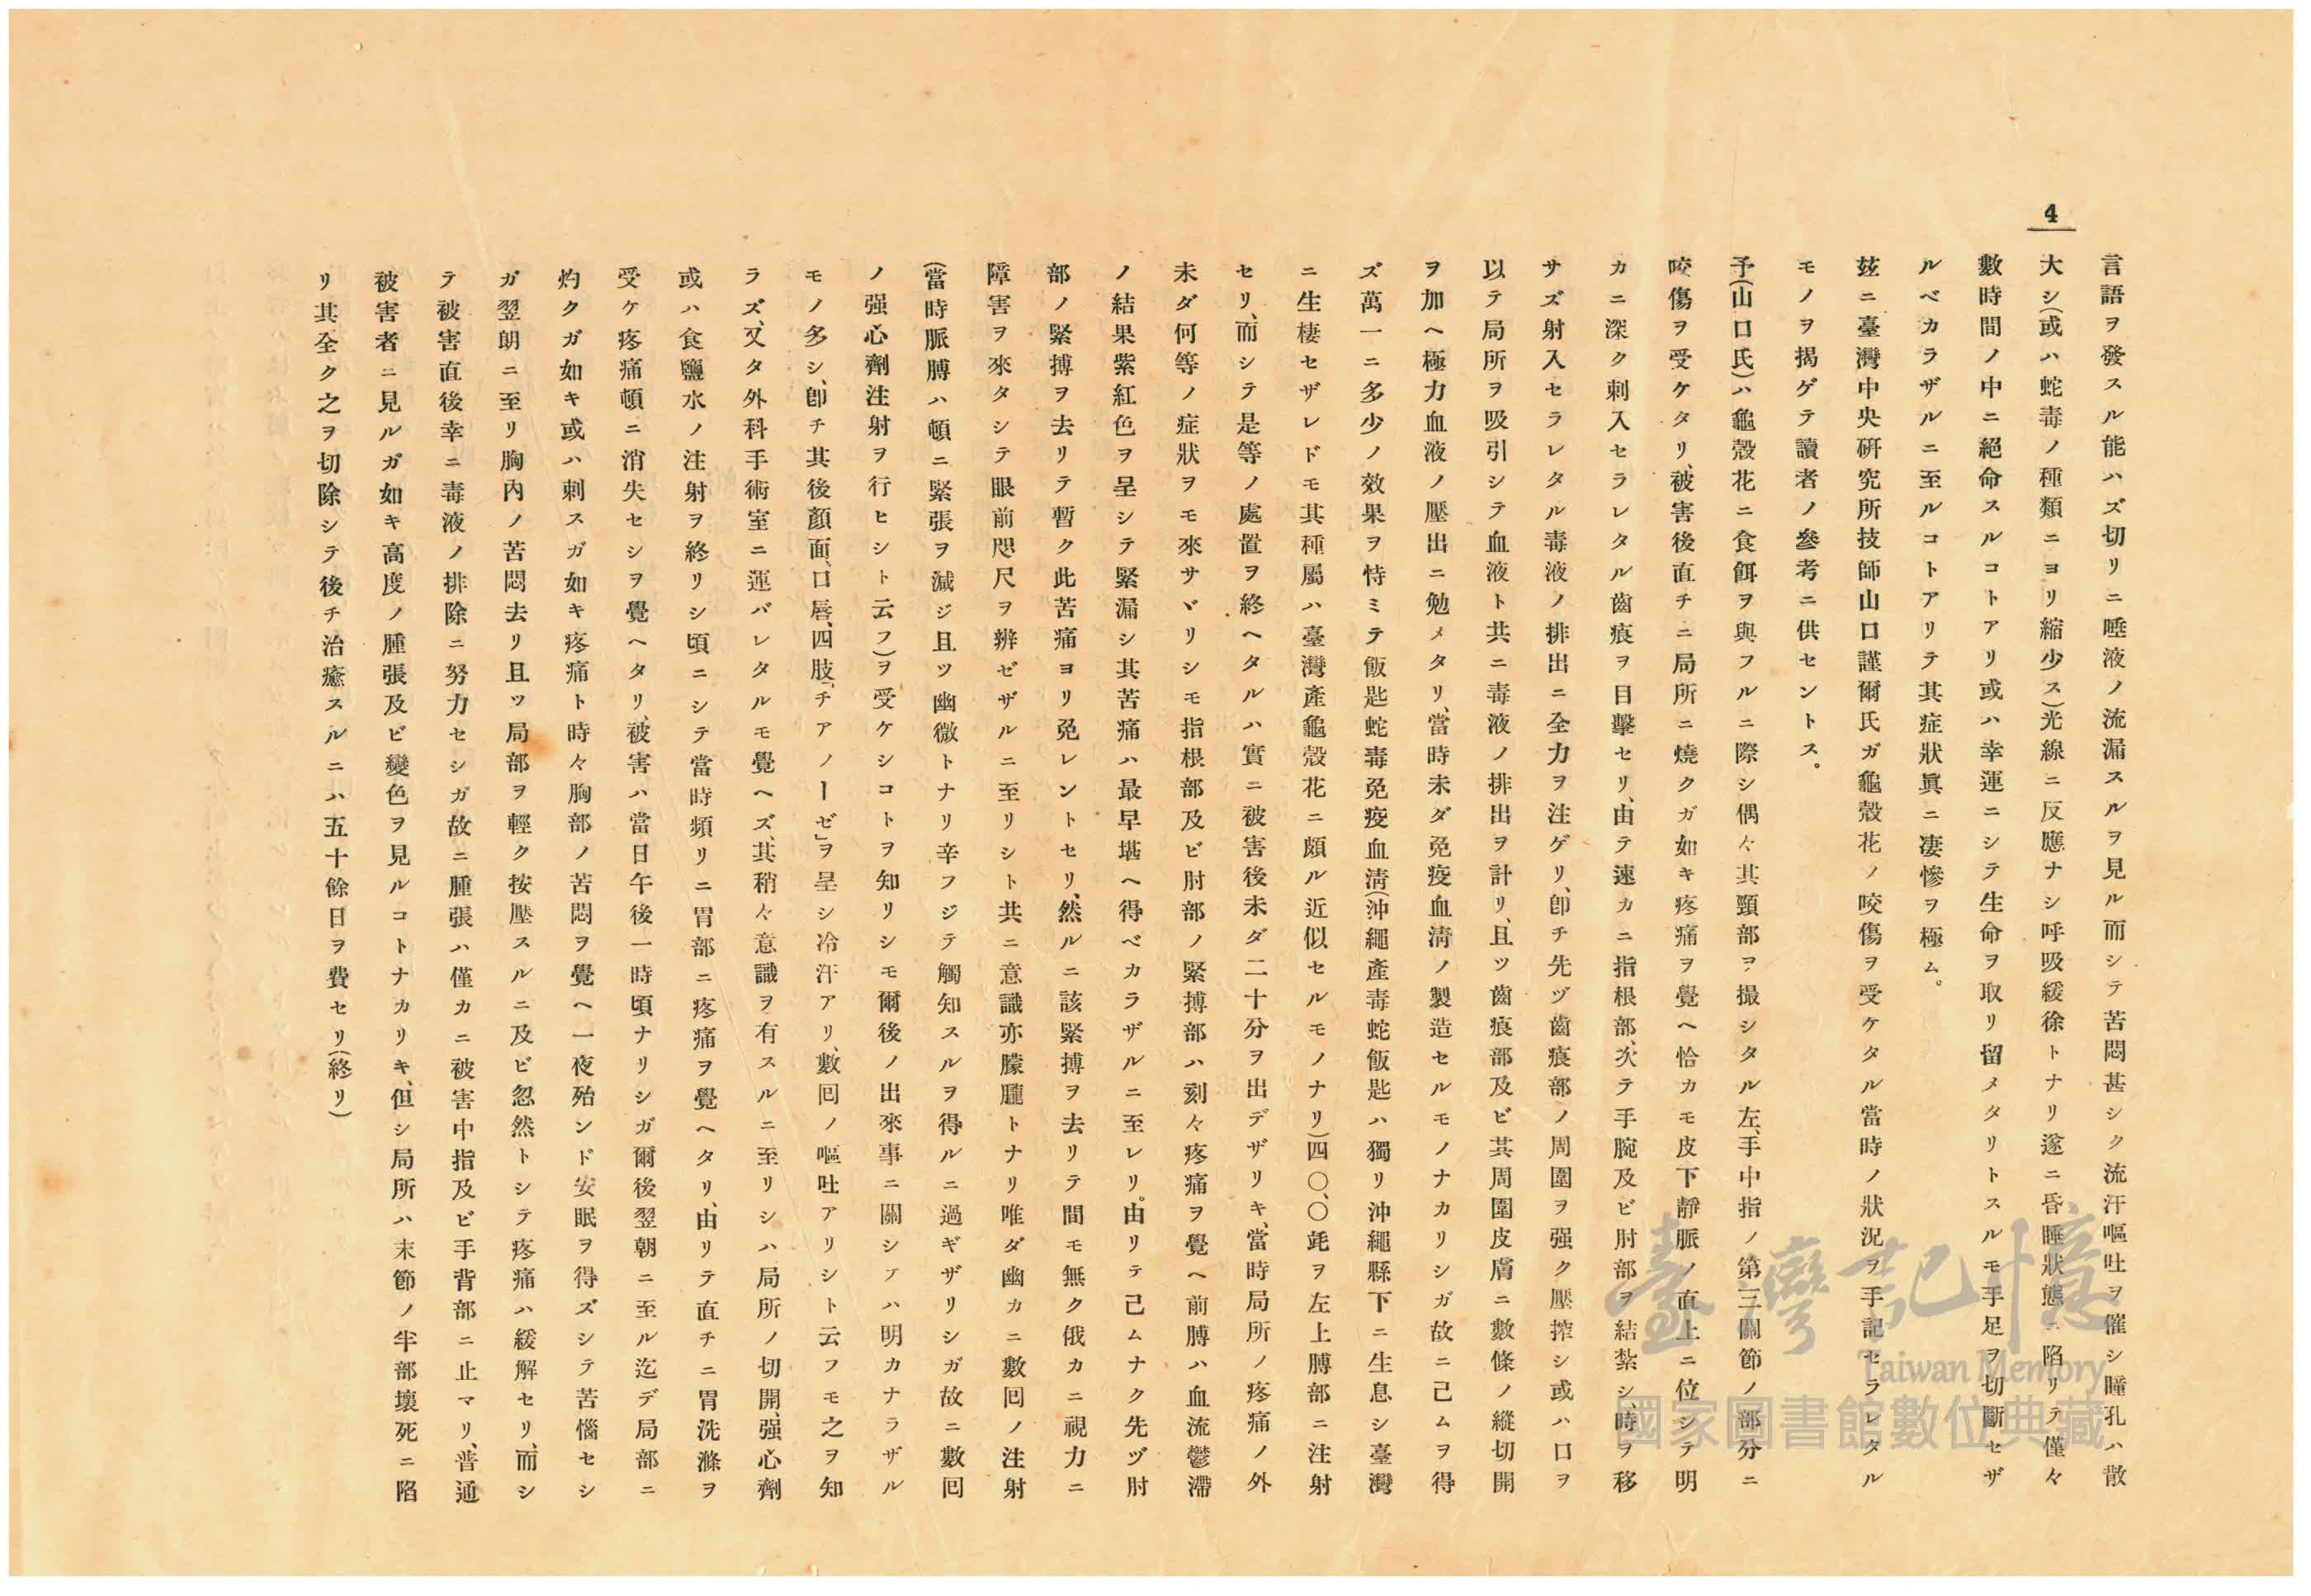 4
言語ヲ發スル能ハズ切リニ唾液ノ流漏スルヲ見ル而シテ苦悶甚シク流汗嘔吐ヲ催シ瞳孔ハ散
大シ(或ハ蛇毒ノ種類ニヨリ縮少ス)光線ニ反應ナシ呼吸緩徐トナリ遂ニ昏睡狀態ニ陷リテ僅々
數時間ノ中ニ絕命スルコトアリ或ハ幸運ニシテ生命ヲ取リ留メタリトスルモ手足ヲ切斷セザ
ルベカラザルニ至ルコトアリテ其症狀眞ニ凄慘ヲ極ム。
玆ニ臺灣中央研究所技師山口謹爾氏ガ龜殼花ノ咬傷ヲ受ケタル當時ノ狀況ヲ手記セラレタル
モノヲ揭ゲテ讀者ノ參考ニ供セントス。
予(山口氏)ハ龜殼花ニ食餌ヲ與フルニ際シ偶々其頸部ヲ撮シタル左、手中指ノ第三關節ノ部分ニ
咬傷ヲ受ケタリ、被害後直チニ局所ニ燒クガ如キ疼痛ヲ覺ヘ恰カモ皮下靜脈ノ直上ニ位シテ明
カニ深ク刺入セラレタル齒痕ヲ目擊セリ、由テ速カニ指根部、次テ手腕及ビ肘部ヲ結紮シ、時ヲ移
サズ射入セラレタル毒液ノ排出ニ全力ヲ注ゲリ、卽チ先ヅ齒痕部ノ周圍ヲ强ク壓搾シ或ハ口ヲ
以テ局所ヲ吸引シテ血液ト共ニ毒液ノ排出ヲ計リ、且ツ齒痕部及ビ其周圍皮膚ニ數條ノ縱切開
ヲ加ヘ極力血液ノ壓出ニ勉メタリ、當時未ダ免疫血淸ノ製造セルモノナカリシガ故ニ已ムヲ得
ズ萬一ニ多少ノ效果ヲ恃ミテ飯匙蛇毒免疫血淸(沖繩產毒蛇飯匙ハ獨リ沖繩縣下ニ生息シ臺灣
ニ生棲セザレドモ其種屬ハ臺灣產龜殼花ニ頗ル近似セルモノナリ)四〇、〇竓ヲ左上膊部ニ注射
セリ、而シテ是等ノ處置ヲ終ヘタルハ實ニ被害後未ダ二十分ヲ出デザリキ、當時局所ノ疼痛ノ外
未ダ何等ノ症狀ヲモ來サヾリシモ指根部及ビ肘部ノ緊搏部ハ刻々疼痛ヲ覺ヘ前膊ハ血流鬱滯
ノ結果紫紅色ヲ呈シテ緊漏シ其苦痛ハ最早堪ヘ得ベカラザルニ至レリ。由リテ已ムナク先ヅ肘
部ノ緊搏ヲ去リテ暫ク此苦痛ヨリ免レントセリ、然ルニ該緊搏ヲ去リテ間モ無ク俄カニ視力ニ
障害ヲ來タシテ眼前咫尺ヲ辨ゼザルニ至リシト共ニ意識亦朦朧トナリ唯ダ幽カニ數囘ノ注射
(當時脈膊ハ頓ニ緊張ヲ減ジ且ツ幽微トナリ辛フジテ觸知スルヲ得ルニ過ギザリシガ故ニ數囘
ノ强心劑注射ヲ行ヒシト云フ)ヲ受ケシコトヲ知リシモ爾後ノ出來事ニ關シテハ明カナラザル
モノ多シ、卽チ其後顏面、口唇、四肢「チアノーゼ」ヲ呈シ冷汗アリ、數囘ノ嘔吐アリシト云フモ之ヲ知
ラズ、又タ外科手術室ニ運バレタルモ覺ヘズ、其稍々意識ヲ有スルニ至リシハ局所ノ切開、强心劑
或ハ食鹽水ノ注射ヲ終リシ頃ニシテ當時頻リニ胃部ニ疼痛ヲ覺ヘタリ、由リテ直チニ胃洗滌ヲ
受ケ疼痛頓ニ消失セシヲ覺ヘタリ、被害ハ當日午後一時頃ナリシガ爾後翌朝ニ至ル迄デ局部ニ
灼クガ如キ或ハ刺スガ如キ疼痛ト時々胸部ノ苦悶ヲ覺ヘ一夜殆ンド安眠ヲ得ズシテ苦惱セシ
ガ翌朗ニ至リ胸內ノ苦悶去リ且ツ局部ヲ輕ク按壓スルニ及ビ忽然トシテ疼痛ハ緩解セリ、而シ
テ被害直後幸ニ毒液ノ排除ニ努力セシガ故ニ腫張ハ僅カニ被害中指及ビ手背部ニ止マリ、普通
被害者ニ見ルガ如キ高度ノ腫張及ビ變色ヲ見ルコトナカリキ、但シ局所ハ末節ノ半部壞死ニ陷
リ其全ク之ヲ切除シテ後チ治癒スルニハ五十餘日ヲ費セリ(終リ)
臺灣記憶
Taiwan Memory
國家圖書館數位典藏